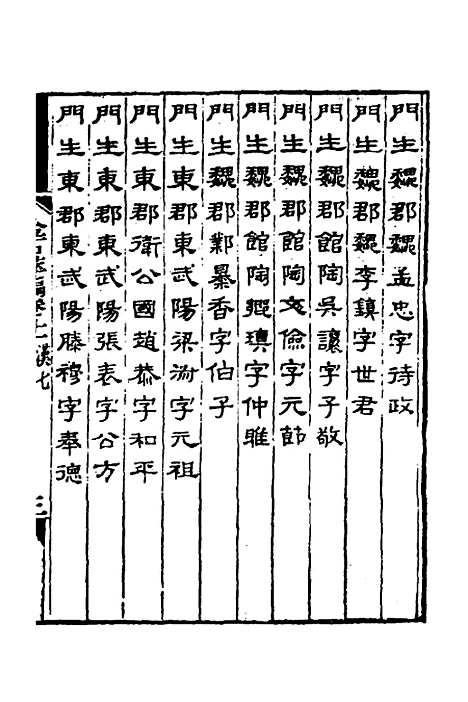 門生魏郡魏孟忠字待政
門生魏郡魏李鎮字世君
門生魏郡館陶吳讓字子敬
門生魏郡館陶文儉字元節
門生魏郡館陶鄉瑱字仲雅
門生魏郡鄴暴香字伯子
門生東郡東武陽梁淵字元祖
門生東郡衛公國趙恭字和平
門生東郡東武陽張表字公方
門生東郡東武陽滕穆字奉德
金石萃編卷十一漢七
三